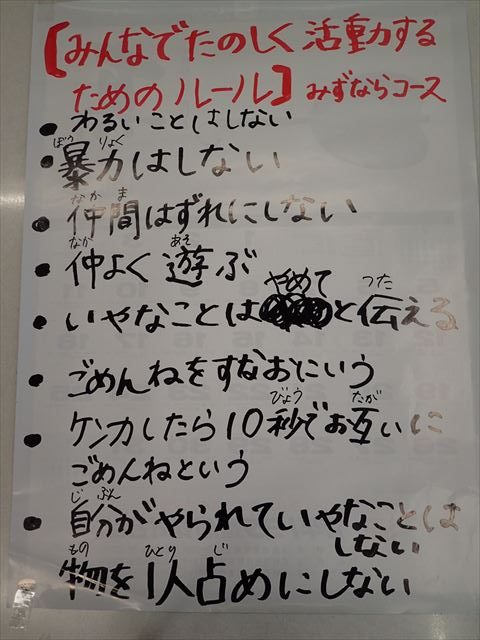 【みんなでたのしく活動する
ためのルール】みずならコース
・わるいことはしない
・暴力はしない
・仲間はずれにしない
・仲よく遊ぶ
・いやなことはやめてと伝える
・ごめんねをすなおにいう
・ケンカしたら10秒でお互いに
ごめんねという
・自分がやられていやなことは
しない
物を1人占めにしない